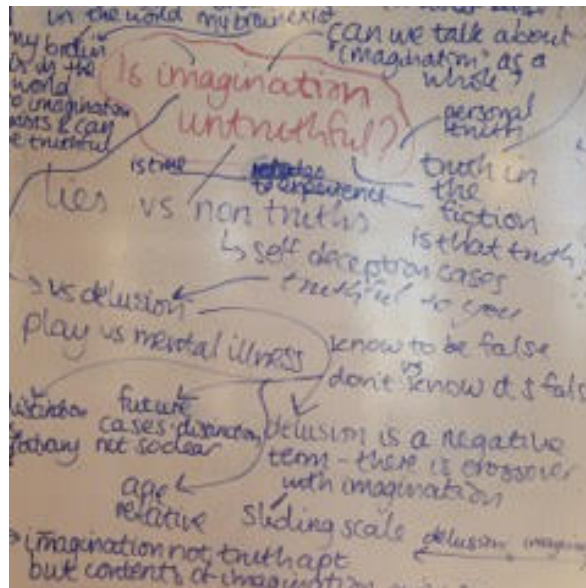 in the world my brain exist
my brain
is in the
world
so imagination
exists & can
be truthful
can we talk about
"imagination" as a
whole?
Is imagination
untruthful?
personal
truth
truth in
the
fiction
is that truth
is true
to experience
lies vs non truths
↳ self deception cases
truthful to you
→ vs delusion
play vs mental illness
know to be false
vs
don't know it's fals
distinction
future
cases distinction
not so clear
delusion is a negative
term - there is crossover
with imagination
age
relative
sliding scale
delusion
→ imagination not truth apt
but contents of imagination